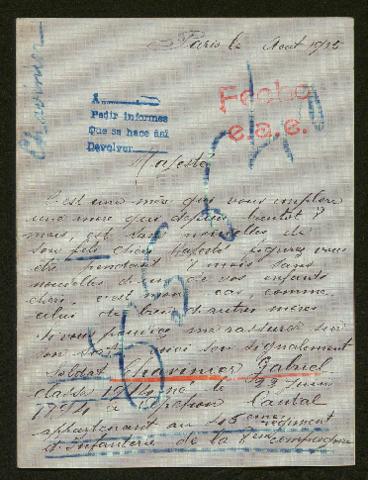 Paris le Aout 1915
Chavinier
A
Pedir informes
Que se hace así
Devolver
Fecho
e.a.e.
Majesté
C'est une mère qui vous implore
une mère qui depuis bientot 8
mois, est sans nouvelles de
son fils chéri Majesté figurez vous
être pendant 7 mois sans
nouvelles de un de vos enfants
chéri, c'est mon cas comme
celui de bien d'autres mères
Si vous pouviez me rassurer sur
son sort voici son signalement
Soldat Chavinier Gabriel
classe 1914 né le 22 Juin
1894 à Cantal
appartenant au régiment
d'Infanterie de la compagnie